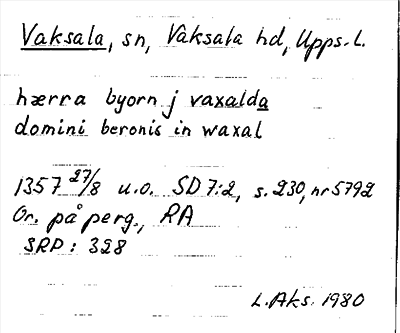 Vaksala, sn, Vaksala hd, Upps. L.
hærra byorn j vaxalda
domini beronis in waxal
1357 27/8 u.o. SD 7:2, s. 230, nr 5792
Or. på perg., RA
SRP: 328
L. Aks. 1980